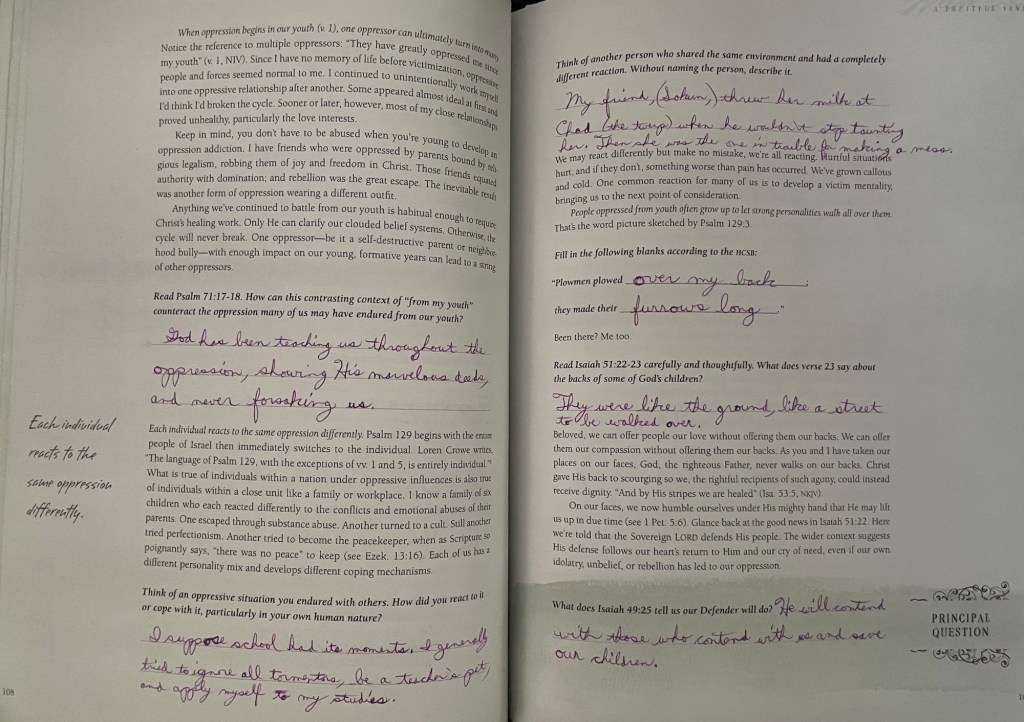 When oppression begins in our youth (v. 1), one oppressor can ultimately turn into many.
Notice the reference to multiple oppressors: "They have greatly oppressed me since
my youth" (v. 1, NIV). Since I have no memory of life before victimization, oppressive
people and forces seemed normal to me. I continued to unintentionally work myself
into one oppressive relationship after another. Some appeared almost ideal at first and
I'd think I'd broken the cycle. Sooner or later, however, most of my close relationships
proved unhealthy, particularly the love interests.
Keep in mind, you don't have to be abused when you're young to develop an
oppression addiction. I have friends who were oppressed by parents bound by reli-
gious legalism, robbing them of joy and freedom in Christ. Those friends equated
authority with domination; and rebellion was the great escape. The inevitable result
was another form of oppression wearing a different outfit.
Anything we've continued to battle from our youth is habitual enough to require
Christ's healing work. Only He can clarify our clouded belief systems. Otherwise, the
cycle will never break. One oppressor—be it a self-destructive parent or neighbor-
hood bully—with enough impact on our young, formative years can lead to a string
of other oppressors.
Read Psalm 71:17-18. How can this contrasting context of "from my youth"
counteract the oppression many of us may have endured from our youth?
God has been teaching us throughout the
oppression, showing His marvelous deeds,
and never forsaking us.
Each individual
reacts to the
same oppression
differently.
Each individual reacts to the same oppression differently. Psalm 129 begins with the entire
people of Israel then immediately switches to the individual. Loren Crowe writes,
"The language of Psalm 129, with the exceptions of vv. 1 and 5, is entirely individual."
What is true of individuals within a nation under oppressive influences is also true
of individuals within a close unit like a family or workplace. I know a family of six
children who each reacted differently to the conflicts and emotional abuses of their
parents. One escaped through substance abuse. Another turned to a cult. Still another
tried perfectionism. Another tried to become the peacekeeper, when as Scripture so
poignantly says, "there was no peace" to keep (see Ezek. 13:16). Each of us has a
different personality mix and develops different coping mechanisms.
Think of an oppressive situation you endured with others. How did you react to it
or cope with it, particularly in your own human nature?
I suppose school had its moments. I generally
tried to ignore all tormentors, be a teacher's pet,
and apply myself to my studies.
108
Think of another person who shared the same environment and had a completely
different reaction. Without naming the person, describe it.
My friend, threw her milk at
Chad (the twerp) when he wouldn't stop taunting
her. Then she was the one in trouble for making a mess.
We may react differently but make no mistake, we're all reacting. Hurtful situations
hurt, and if they don't, something worse than pain has occurred. We've grown callous
and cold. One common reaction for many of us is to develop a victim mentality,
bringing us to the next point of consideration.
People oppressed from youth often grow up to let strong personalities walk all over them.
That's the word picture sketched by Psalm 129:3.
Fill in the following blanks according to the HCSB:
"Plowmen plowed over my back ;
they made their furrows long ."
Been there? Me too.
Read Isaiah 51:22-23 carefully and thoughtfully. What does verse 23 say about
the backs of some of God's children?
They were like the ground, like a street
to be walked over.
Beloved, we can offer people our love without offering them our backs. We can offer
them our compassion without offering them our backs. As you and I have taken our
places on our faces, God, the righteous Father, never walks on our backs. Christ
gave His back to scourging so we, the rightful recipients of such agony, could instead
receive dignity. "And by His stripes we are healed" (Isa. 53:5, NKJV).
On our faces, we now humble ourselves under His mighty hand that He may lift
us up in due time (see 1 Pet. 5:6). Glance back at the good news in Isaiah 51:22. Here
we're told that the Sovereign LORD defends His people. The wider context suggests
His defense follows our heart's return to Him and our cry of need, even if our own
idolatry, unbelief, or rebellion has led to our oppression.
What does Isaiah 49:25 tell us our Defender will do? He will contend
with those who contend with us and save
our children.
PRINCIPAL
QUESTION